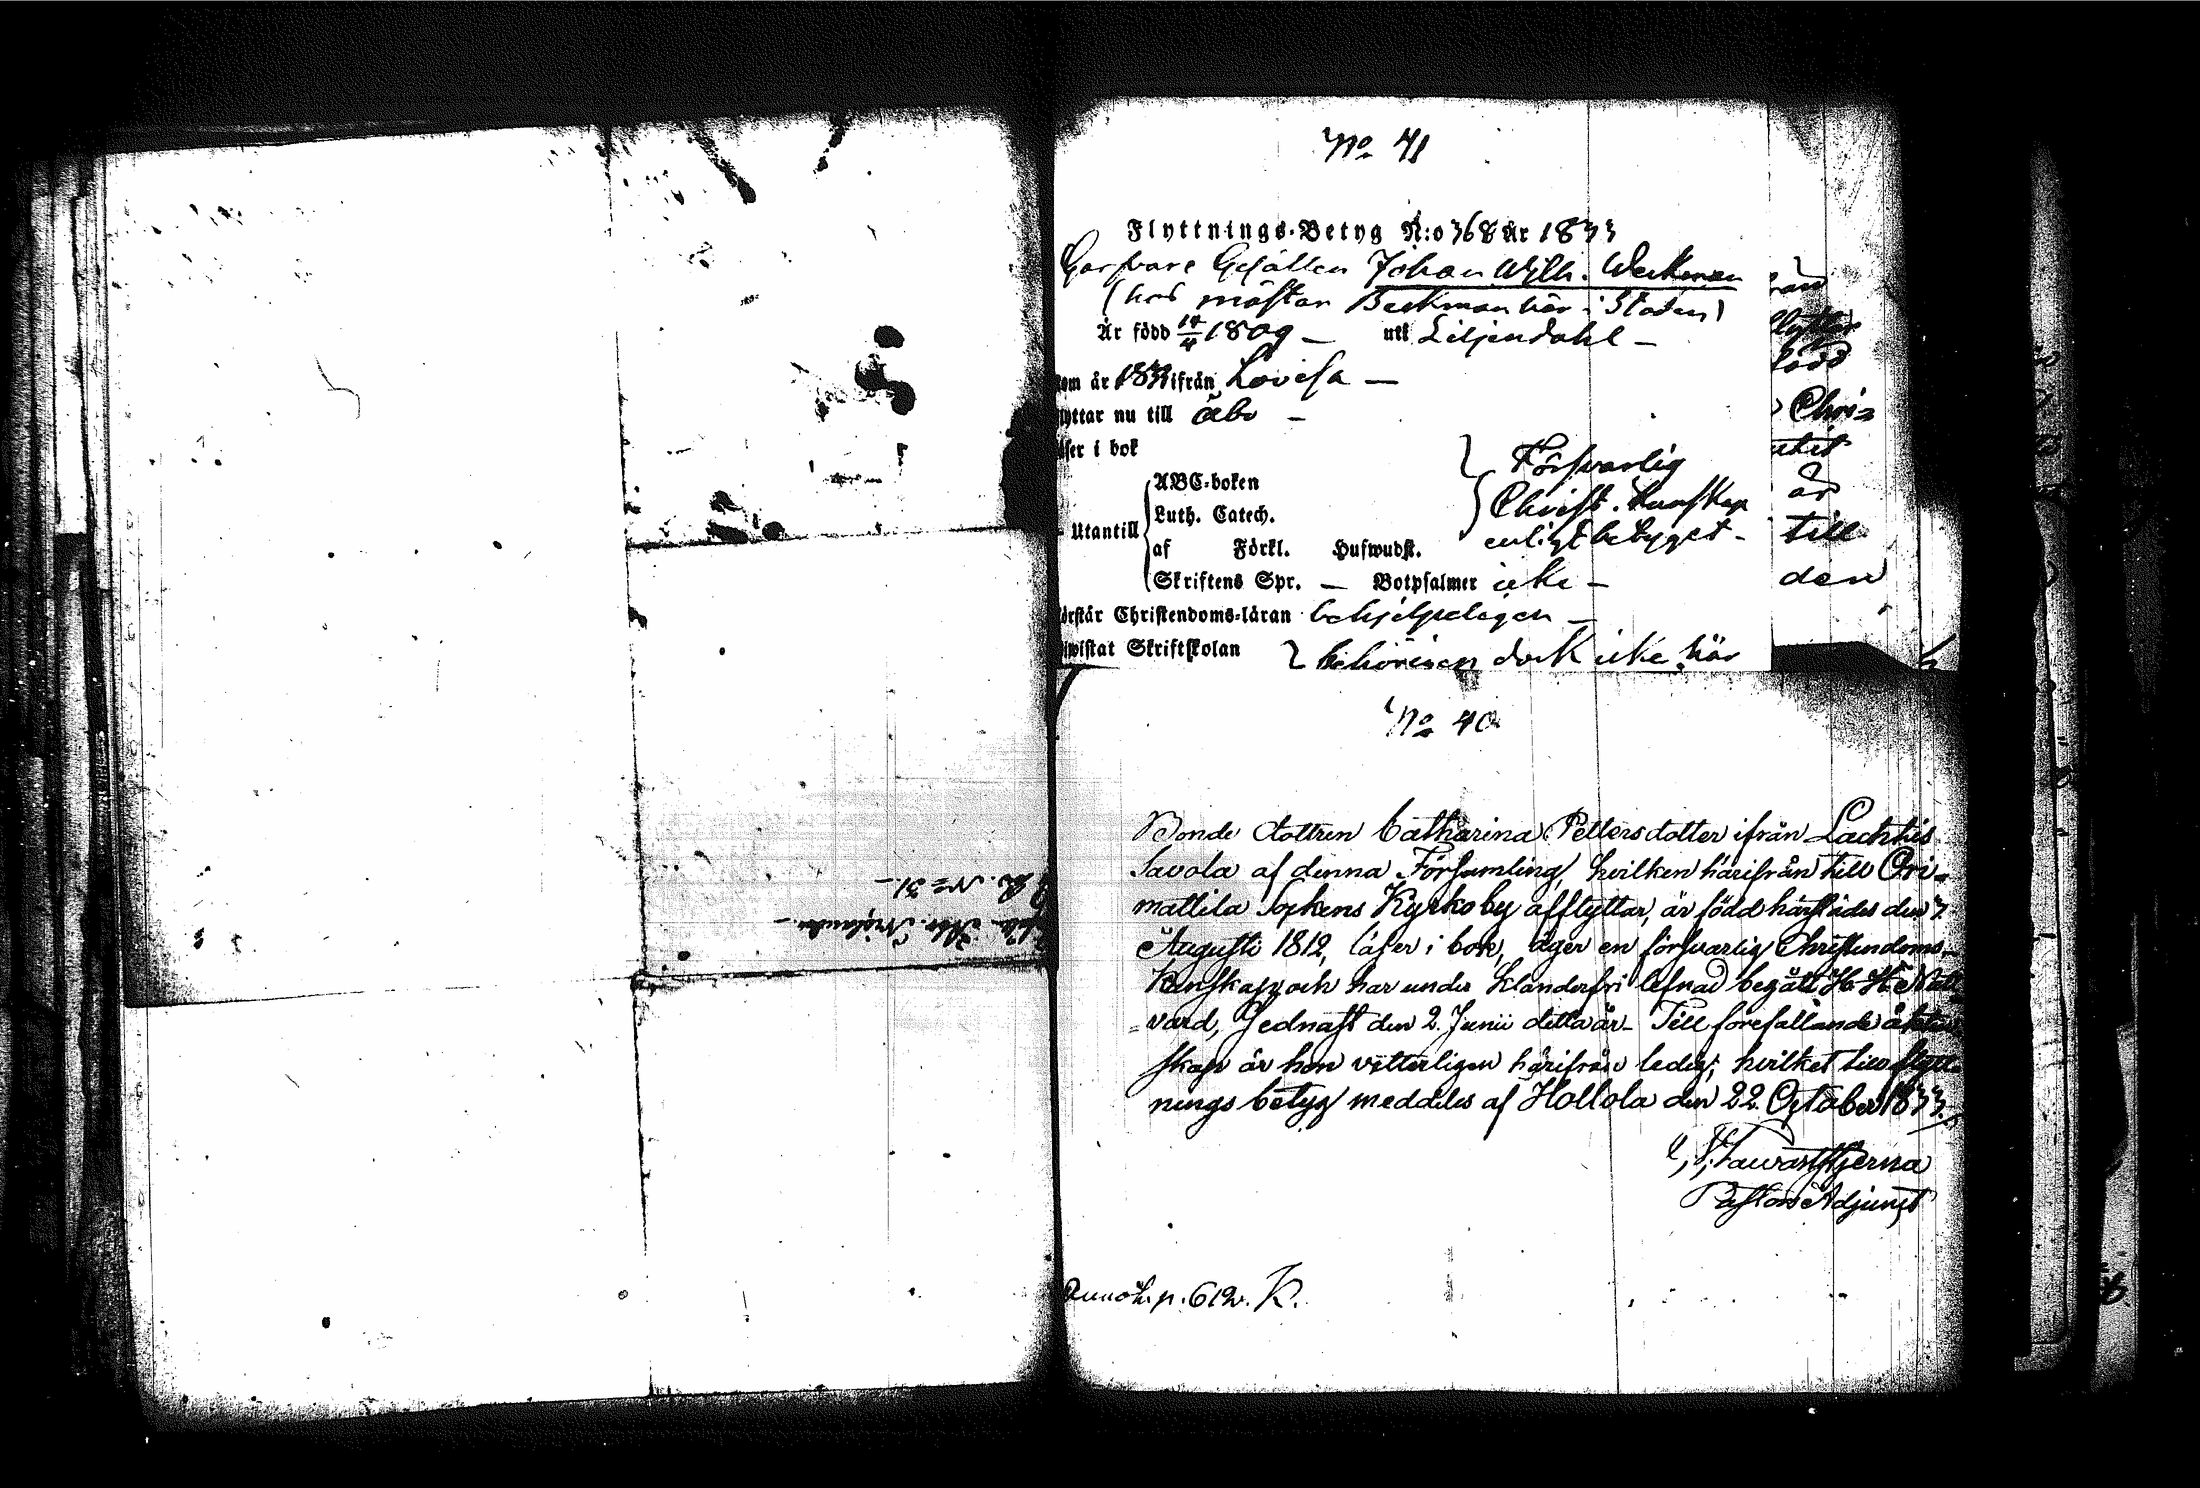 No 41
Flyttnings-Betyg N:o 368 År 1833
Garfvare Gesällen Johan Wilh. Weckman
(hos mästar Beckman här i Staden)
Är född 14/4 1809 – uti Liljendahl –
om år 183 ifrån Lovisa –
yttar nu till Åbo –
äser i bok
ABC-boken
Luth. Catech.
Utantill
af Förkl. Hufwudst.
Skriftens Spr. — Botpsalmer icke –
Försvarlig
Christ. kunskap
enligt betyget –
örstår Christendoms-läran behjelpeligen –
wistat Skriftskolan behörigen dock icke här
rån
flyttar
född
Chri=
är
till
den
No 40
Bonde dottren Catharina Pettersdotter ifrån Lachtis
Savola af denna Församling, hvilken härifrån till Ori=
mattila Sockens Kyrkoby afflyttar, är född härstädes den 7
Augusti 1812, läser i bok, äger en försvarlig Christendoms=
kunskap och har under klanderfri lefnad begått H. H. Natt
=vard, sednast den 2. Junii detta år – Till förefallande äkten
skap är hon vetterligen härifrån ledig; hvilket till flytt
nings betyg meddeles af Hollola den 22. October 1833.
Pastors Adjunct
Annot. p. 612. K.
N:o 31.–